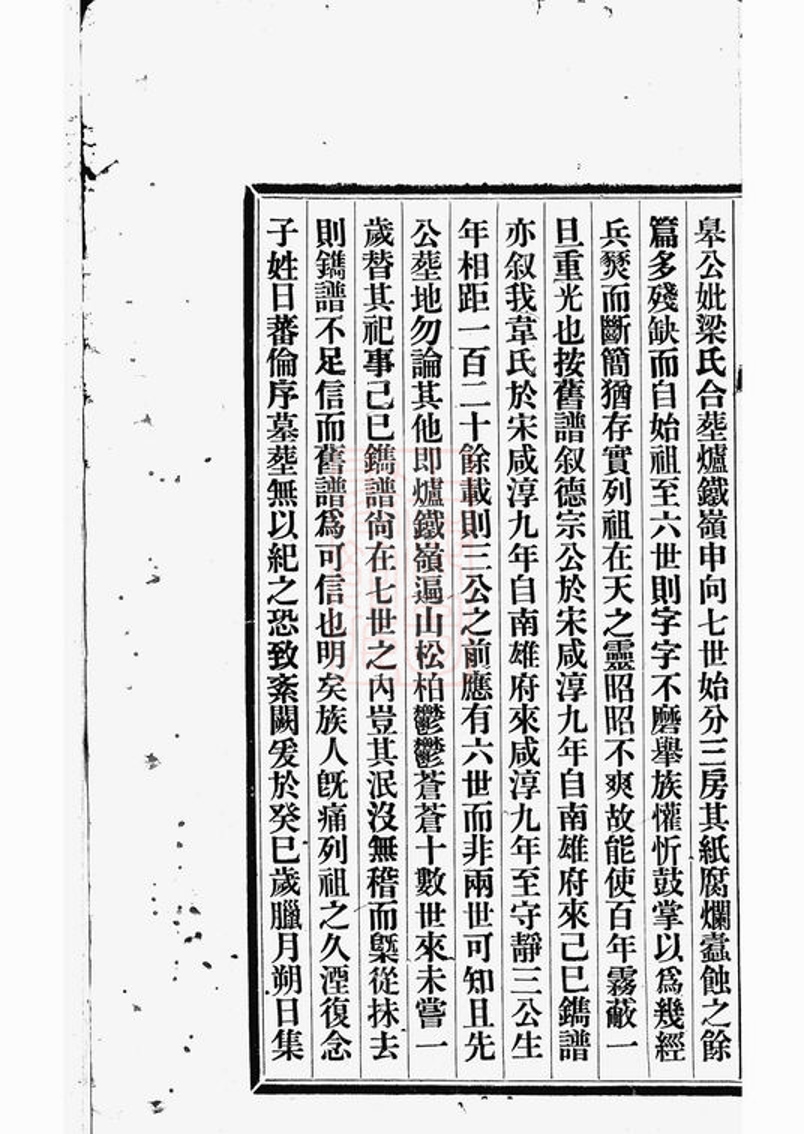 皐公妣梁氏合塟爐鐵嶺申向七世始分三房其紙腐爛蠧蝕之餘
篇多殘缺而自始祖至六世則字字不磨舉族懽忻鼓掌以爲幾經
兵燹而斷簡猶存實列祖在天之靈昭昭不爽故能使百年霧蔽一
旦重光也按舊譜叙德宗公於宋咸淳九年自南雄府來己巳鐫譜
亦叙我韋氏於宋咸淳九年自南雄府來咸淳九年至守靜三公生
年相距一百二十餘載則三公之前應有六世而非兩世可知且先
公塟地勿論其他即爐鐵嶺遍山松柏鬱鬱蒼蒼十數世來未嘗一
歲替其祀事己巳鐫譜尙在七世之內豈其泯沒無稽而槩從抹去
則鐫譜不足信而舊譜爲可信也明矣族人旣痛列祖之久湮復念
子姓日蕃倫序墓塟無以紀之恐致紊闕爰於癸巳歲臘月朔日集